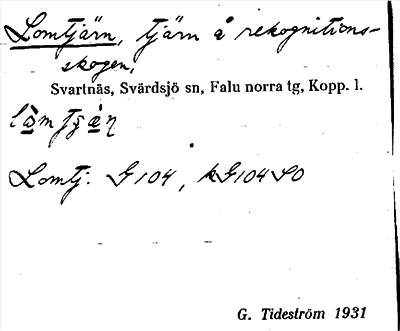 Lomtjärn, tjärn å rekognitions-
skogen,
Svartnäs, Svärdsjö sn, Falu norra tg, Kopp. l.
Lomtj: G104, kG104SO
G. Tideström 1931